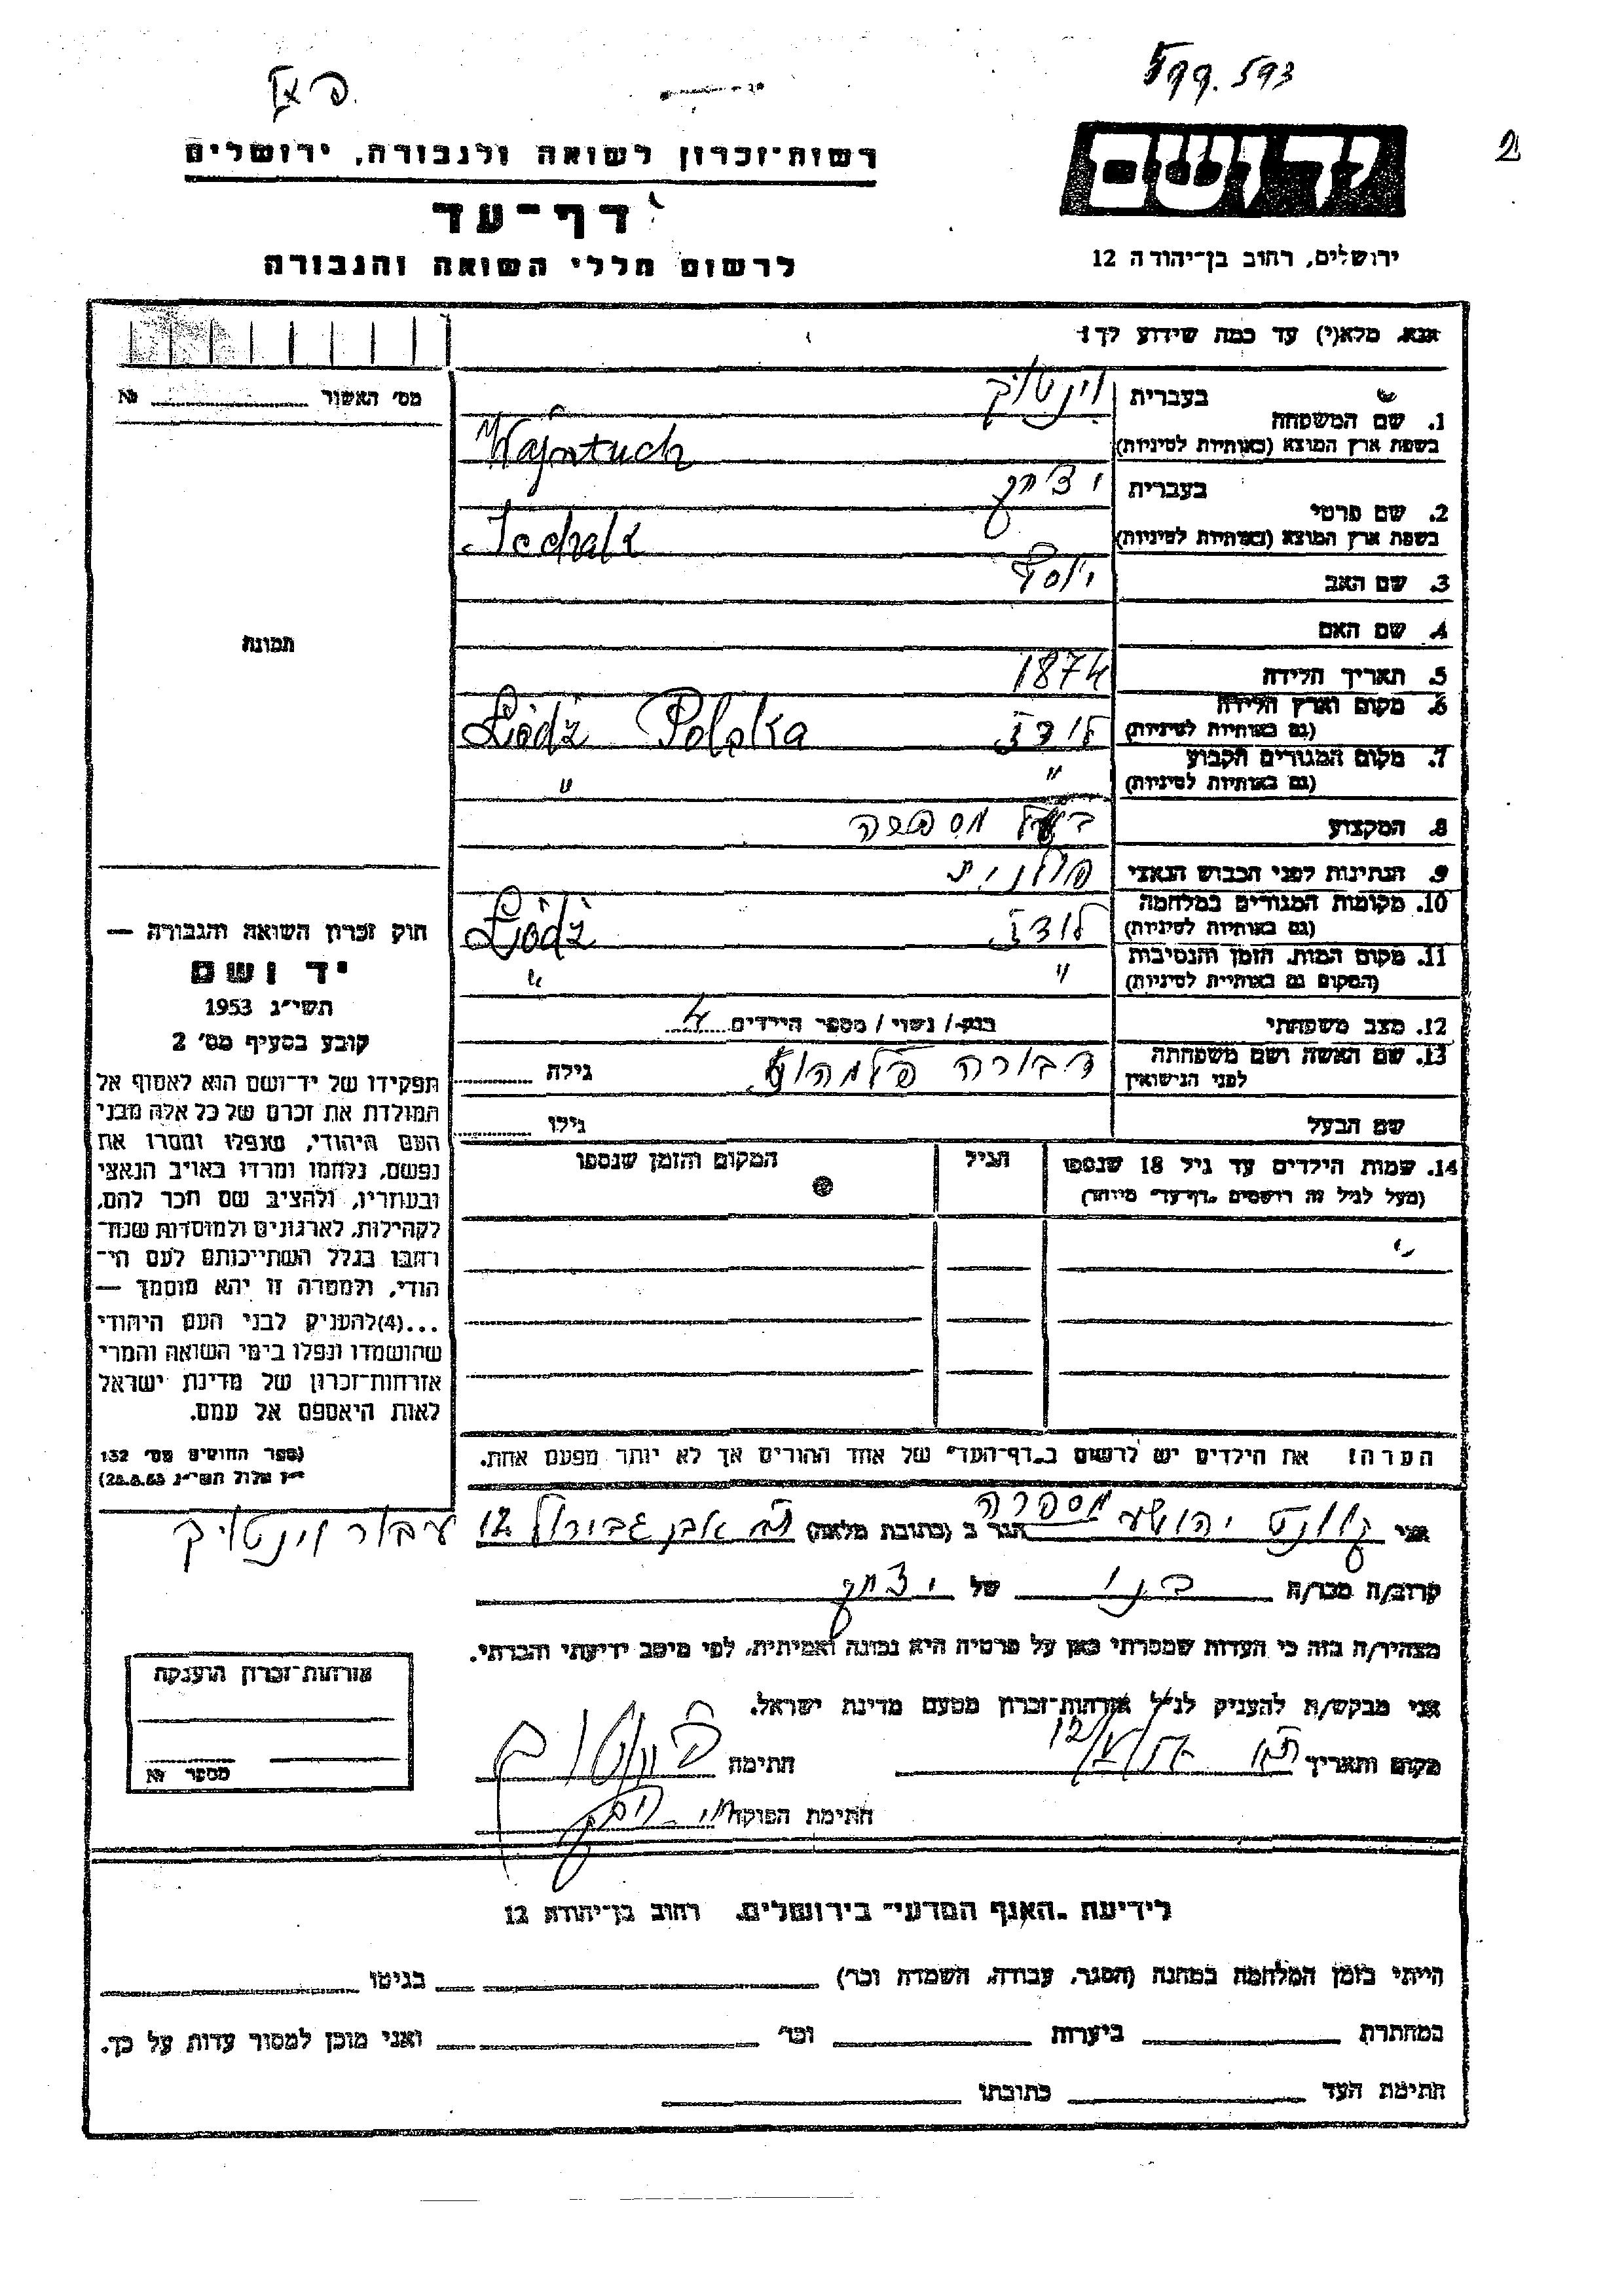 פאז
599.593
2
רשות־זכרון לשואה ולגבורה, ירושלים
דף־עד
לרשום חללי השואה והגבורה
יד ושם
ירושלים, רחוב בן־יהודה 12
אנא, מלא(י) עד כמה שידוע לך:
מס׳ האשור № 
תמונה
1. שם המשפחה
בעברית וינטוך
בשפת ארץ המוצא (באותיות לטיניות) Wajntuch
2. שם פרטי
בעברית יצחק
בשפת ארץ המוצא (באותיות לטיניות) Icchak
3. שם האב יוסף
4. שם האם
5. תאריך הלידה 1874
6. מקום וארץ הלידה (גם באותיות לטיניות) לודז Łódź Polska
7. מקום המגורים הקבוע (גם באותיות לטיניות) " "
8. המקצוע בעל מספרה
9. הנתינות לפני הכבוש הנאצי פולנית
10. מקומות המגורים במלחמה (גם באותיות לטיניות) לודז Łódź
11. מקום המות, הזמן והנסיבות (המקום גם באותיות לטיניות) " "
12. מצב משפחתי רווק / נשוי / מספר הילדים 4
13. שם האשה ושם משפחתה לפני הנישואין דבורה גילה
שם הבעל גילו
14. שמות הילדים עד גיל 18 שנספו (מעל לגיל זה רושמים „דף־עד" מיוחד)
הגיל
המקום והזמן שנספו
הערה: את הילדים יש לרשום ב„דף־העד" של אחד ההורים אך לא יותר מפעם אחת.
חוק זכרון השואה והגבורה —
יד ושם
תשי"ג 1953
קובע בסעיף מס׳ 2
תפקידו של יד־ושם הוא לאסוף אל
המולדת את זכרם של כל אלה מבני
העם היהודי, שנפלו ומסרו את
נפשם, נלחמו ומרדו באויב הנאצי
ובעוזריו, ולהציב שם וזכר להם,
לקהילות, לארגונים ולמוסדות שנח־
רבו בגלל השתייכותם לעם הי־
הודי, ולמטרה זו יהא מוסמך —
...(4) להעניק לבני העם היהודי
שהושמדו ונפלו בימי השואה והמרי
אזרחות־זכרון של מדינת ישראל
לאות היאספם אל עמם.
(ספר החוקים מס׳ 132
י"ז אלול תשי"ג 28.8.53)
אני יהושע מספרה הגר ב (כתובת מלאה) ת"א אבן גבירול 12 עבור וינטויך
קרוב/ה מכר/ה בנו של יצחק
מצהיר/ה בזה כי העדות שמסרתי כאן על פרטיה היא נכונה ואמיתית, לפי מיטב ידיעתי והכרתי.
אני מבקש/ת להעניק לנ"ל אזרחות־זכרון מטעם מדינת ישראל.
מקום ותאריך חתימה
חתימת הפוקד
אזרחות־זכרון הוענקה
מספר №
לידיעת „האגף המדעי" בירושלים, רחוב בן־יהודה 12
הייתי בזמן המלחמה במחנה (הסגר, עבודה, השמדה וכו׳) בגיטו
במחתרת ביערות וכו׳ ואני מוכן למסור עדות על כך.
חתימת העד כתובתו